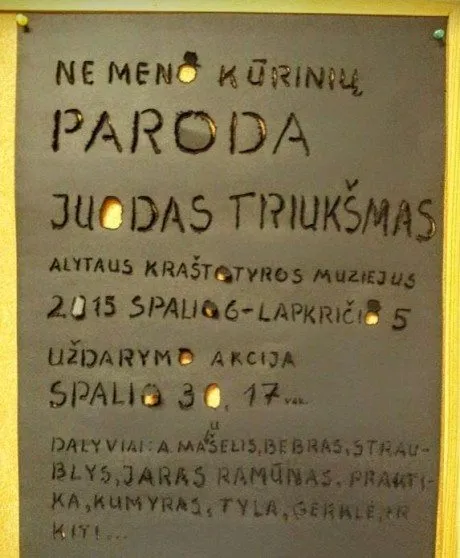 NE MENO KŪRINIŲ
PARODA
JUODAS TRIUKŠMAS
ALYTAUS KRAŠTOTYROS MUZIEJUS
2015 SPALIO 6-LAPKRIČIO 5
UŽDARYMO AKCIJA
SPALIO 30, 17 VAL.
DALYVIAI: A. MAŠELIS, BEBRAS, STRAU-
BLYS, JARAS RAMŪNAS, PRAKTI-
KA, KUMYRAS, TYLA, GERKLĖ, IR
KITI...